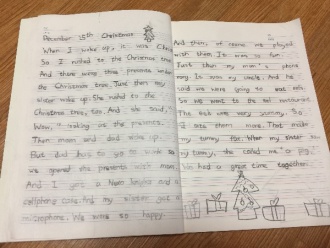 December 25th Christmas
When I woke up, it was Chris
So I rushed to the Christmas tree.
And there were three presents under
the Christmas tree. Just then my
sister woke up. She rushed to the
Christmas tree, too. And she said,
"Wow, are the presents."
Then mom and dad woke up.
But dad had to go to work so
we opened the presents with mom.
And I got a
cellphone case. And my sister got a
microphone. We were so happy.
And then, of course we played
with them. It was so fun.
Just then my mom's phone
rang. It was my uncle. And he
said we were going to eat
So we went to the restaurant.
The fish was very yummy. So
I ate them more. That make
my tummy fat. When my sister saw
my tummy, she called me a pig.
We had a great time together.